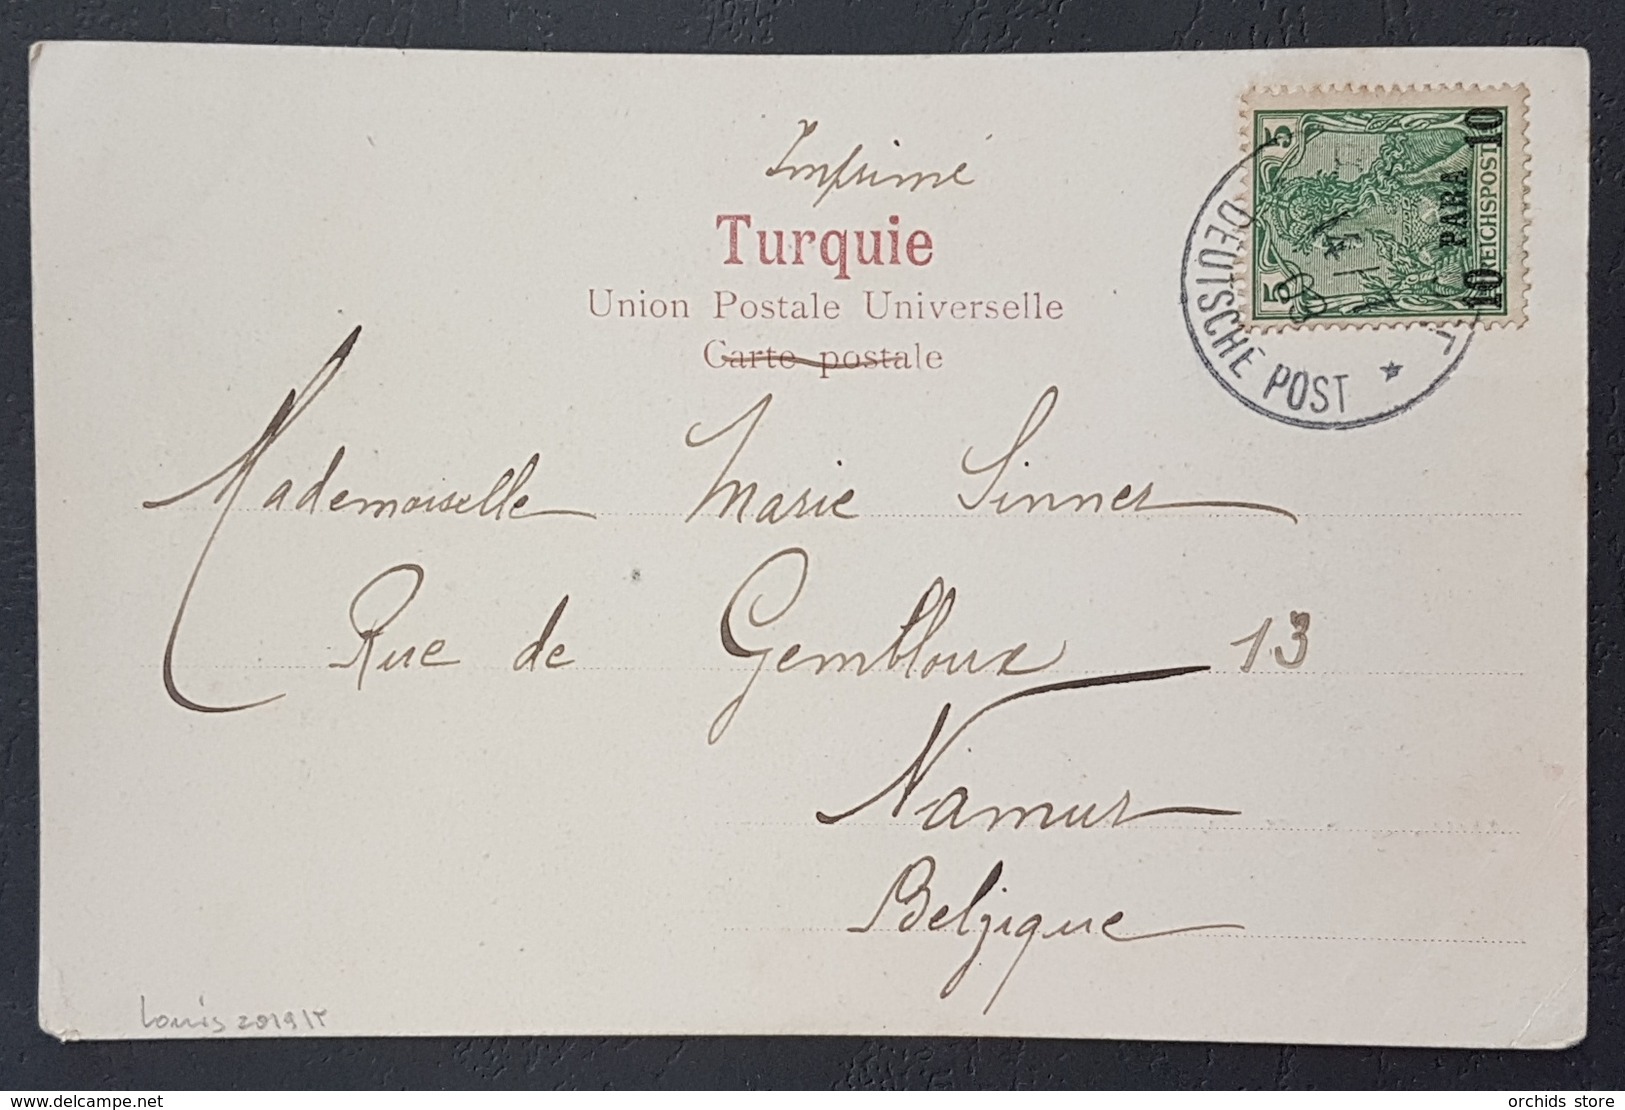 Imprimé
Turquie
Union Postale Universelle
Carte postale
5 5
10 PARA 10
REICHSPOST
DEUTSCHE POST
Mademoiselle Marie Sinner
Rue de Gembloux 13
Namur
Belgique
Louis 2019
delcampe.net
orchids store